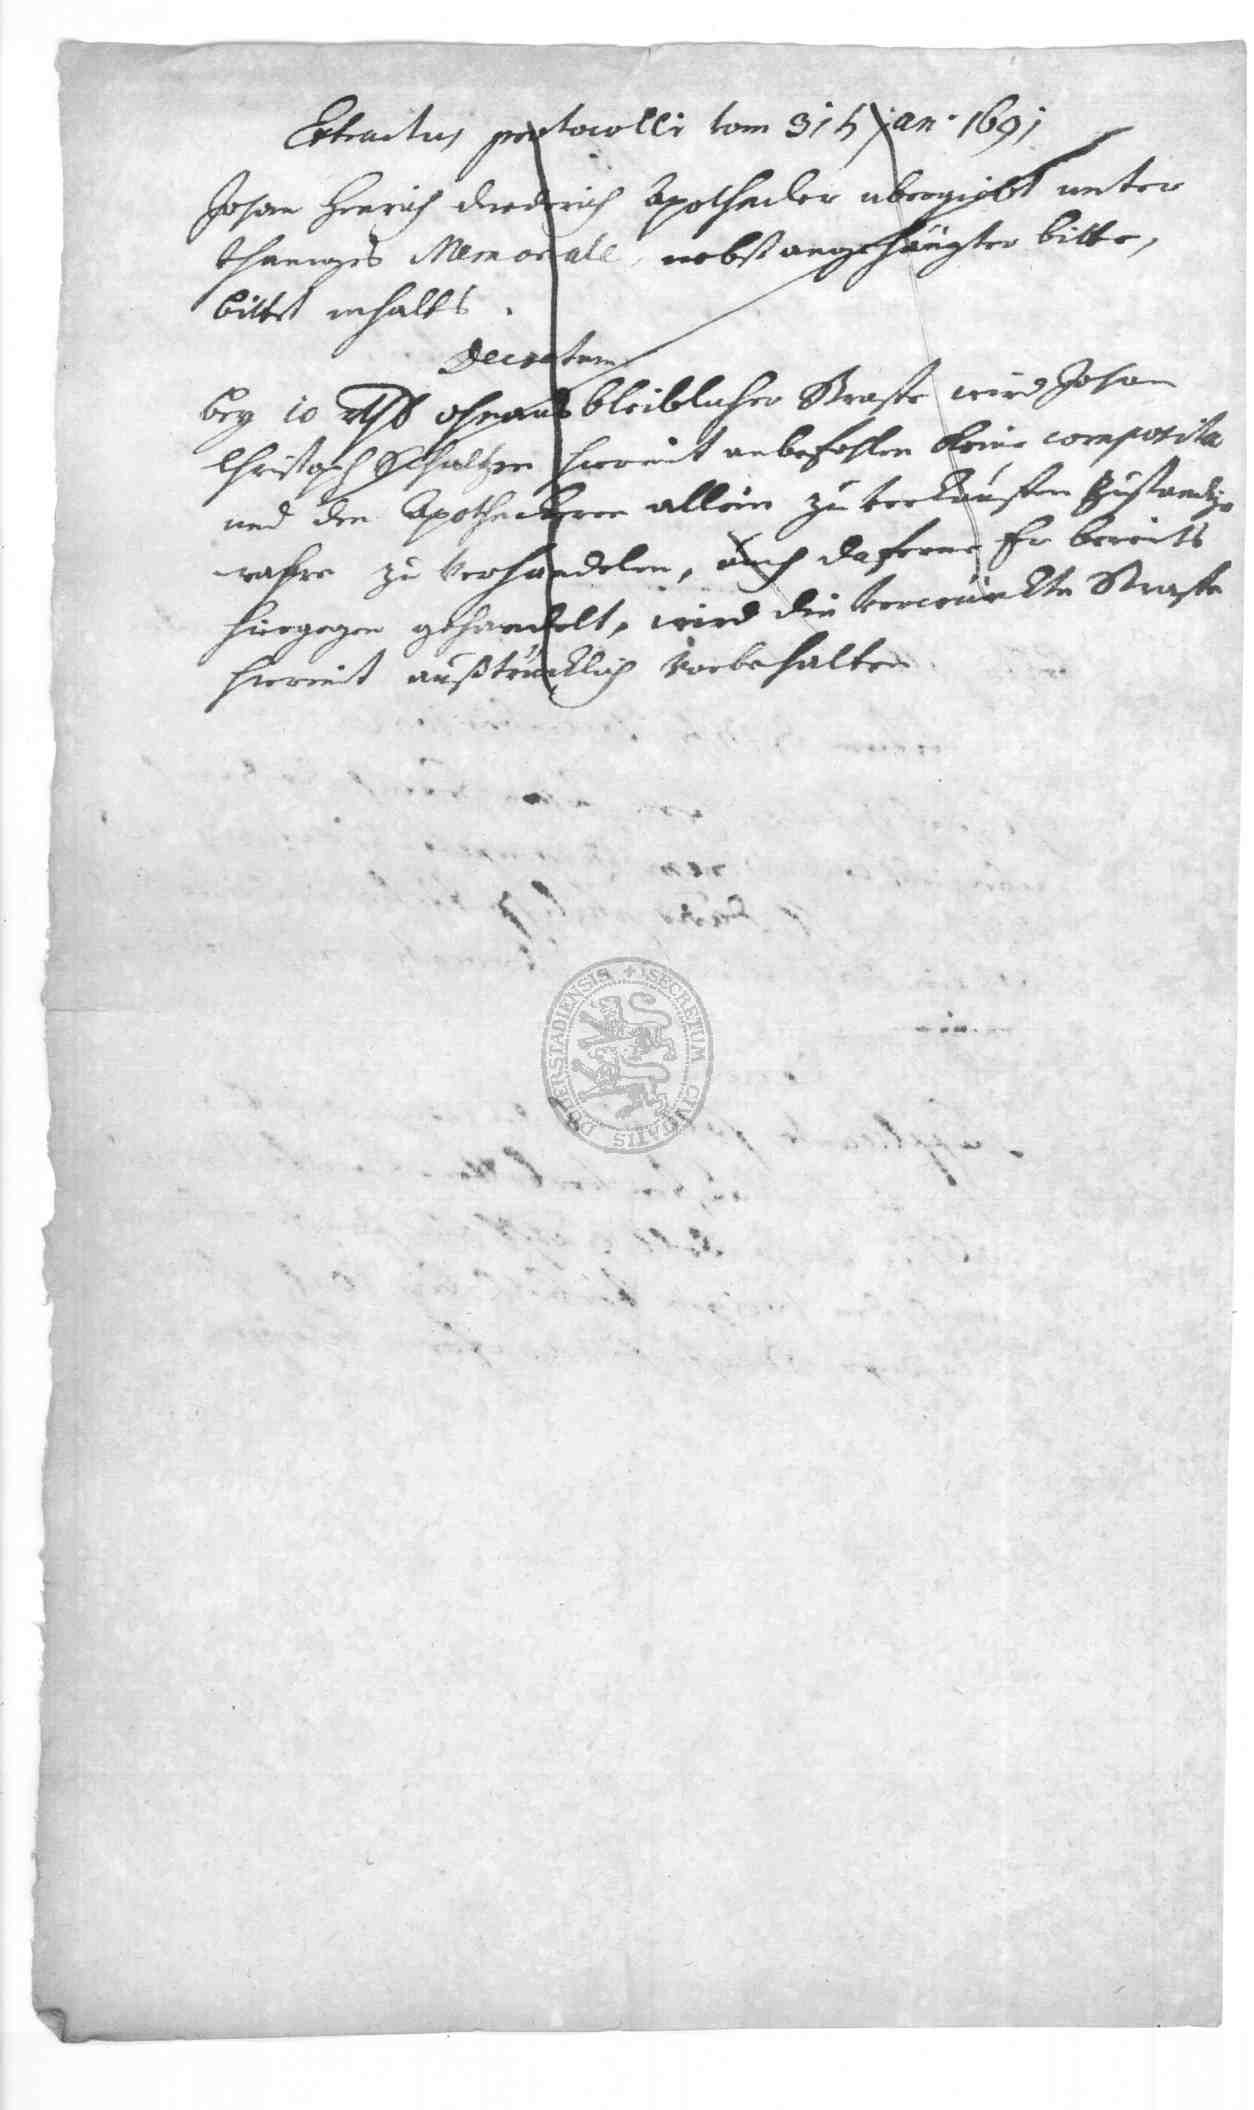 Extractus protocolli vom 31t Jan. 1691
Johan Henrich Diederich Apothecker übergiebt unter
thäniges Memoriale, nebst angehängter bitte,
bittet inhalts.
Decretum
bey 10 rthlr ohnausbleiblicher Straffe wird Johan
Christoph Schultzen hiermit anbefohlen keine composita
und den Apotheckeren allein zu verkauffen zuständige
wahre zu verhandelen, auch daferne Er bereits
hiergegen gehandelt, wird die verwürckte Straffe
hiermit außtrücklich vorbehalten
SECRETUM CIVITATIS DUDERSTADIENSIS